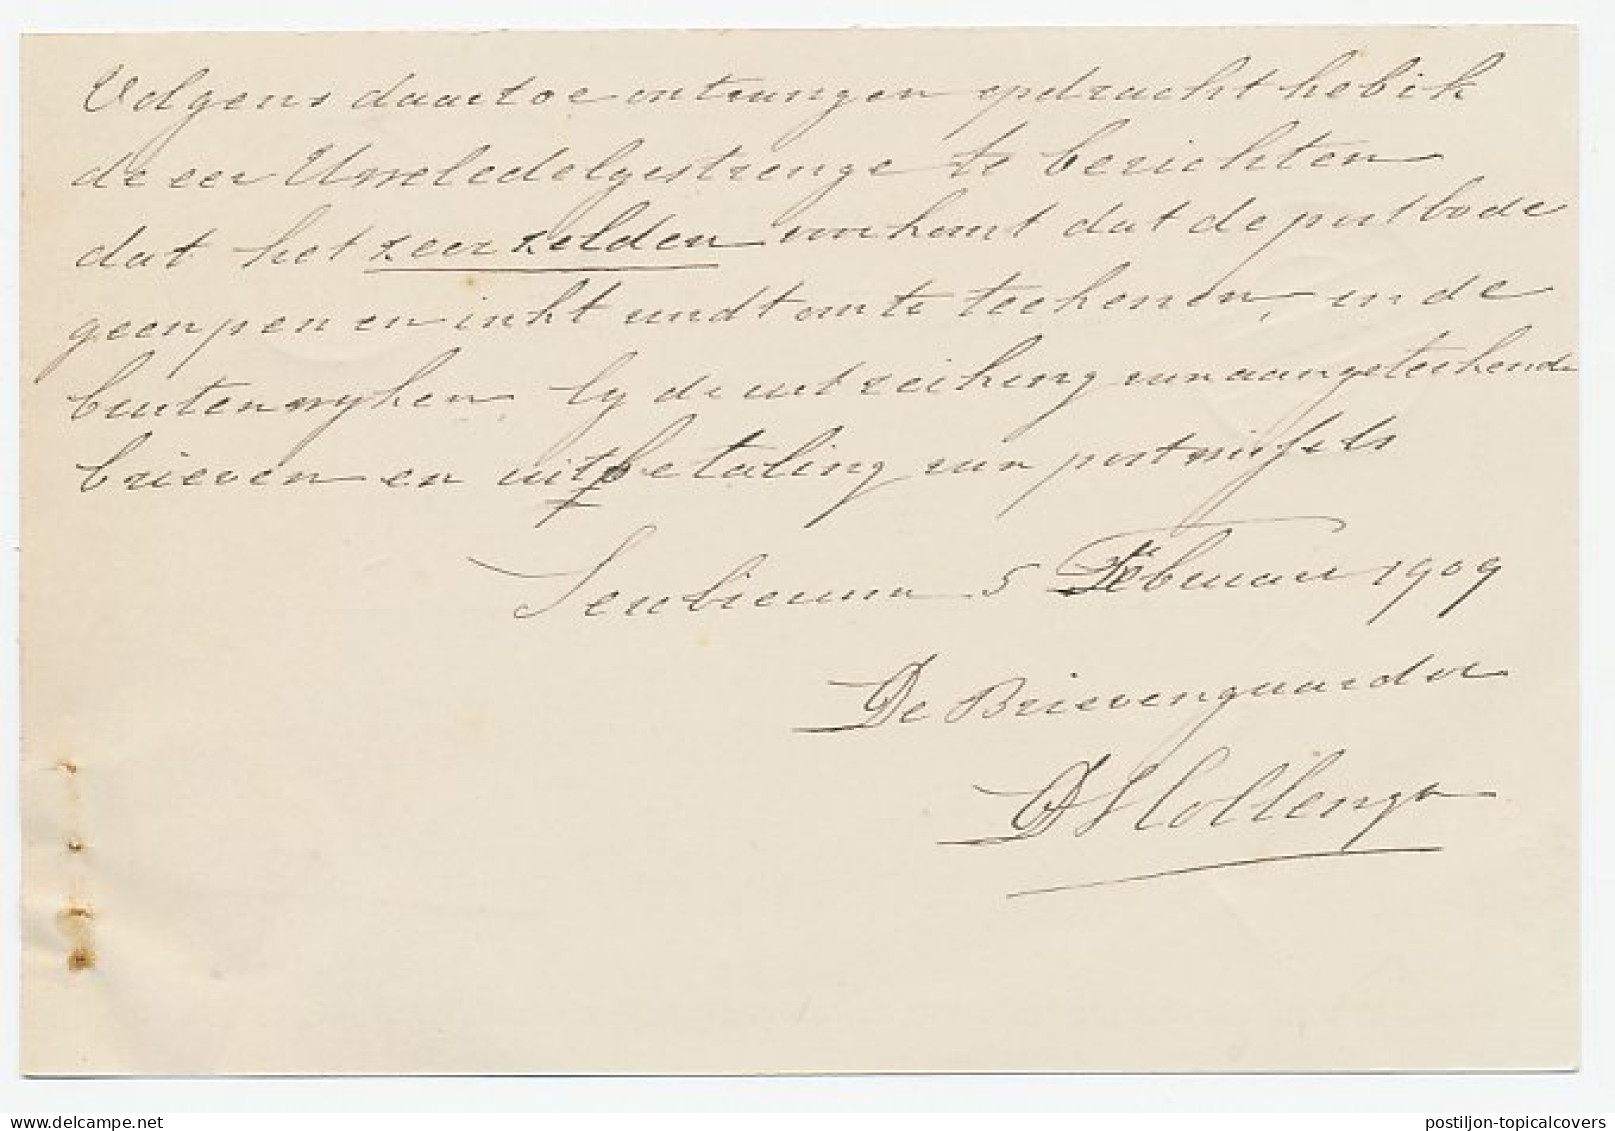 Volgens daartoe ontvangen opdracht heb ik
de eer UweledelGestrenge te berichten
dat het zeer zelden voorkomt dat de postbode
geen pen en inkt vindt om te teekenen, in de
buitenwijken, by de uitreiking van aangeteekende
brieven en uitbetaling van postwissels
5 Februari 1909
De Brievengaarder
postiljon-topicalcovers